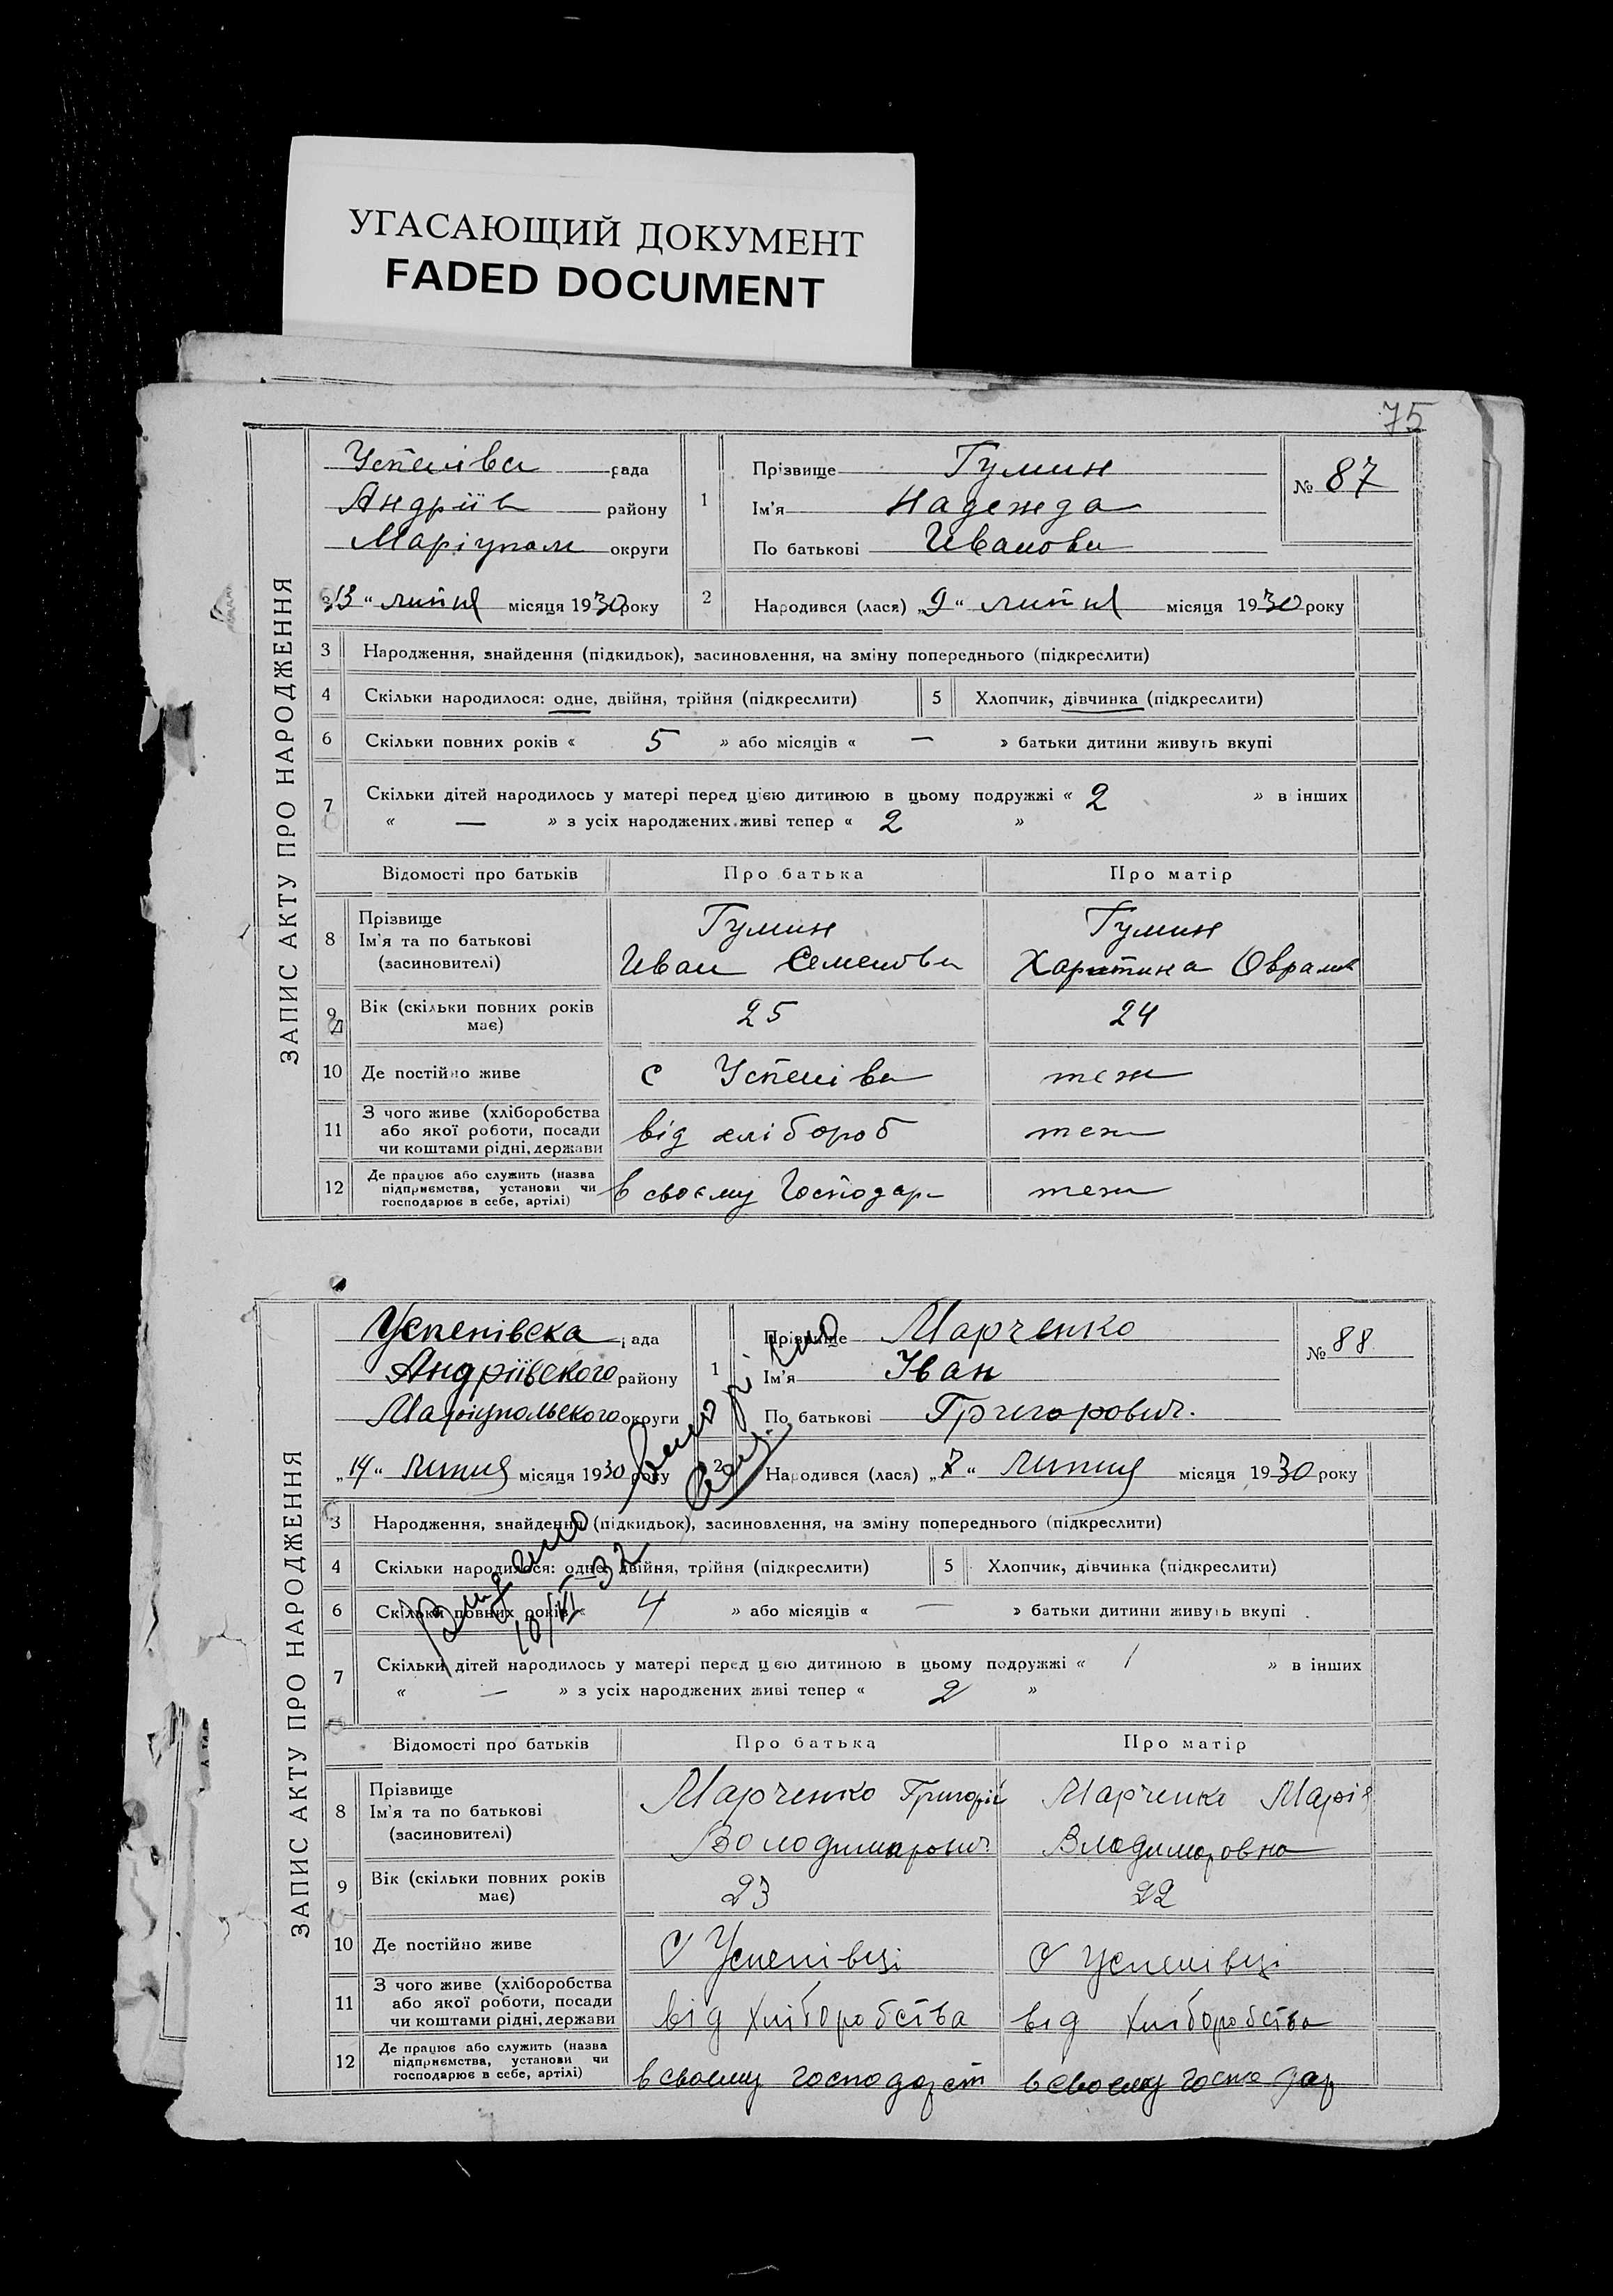 УГАСАЮЩИЙ ДОКУМЕНТ
FADED DOCUMENT
75
ЗАПИС АКТУ ПРО НАРОДЖЕННЯ
Успенівса рада
Андріїв району
Маріупол округи
13 “ липня місяця 1930 року
1 Прізвище Гумин
Ім'я Надежда
По батькові Иванови
№ 87
2 Народився (лася) „9“ липня місяця 1930 року
3 Народження, знайдення (підкидьок), засиновлення, на зміну попереднього (підкреслити)
4 Скільки народилося: одне, двійня, трійня (підкреслити) 5 Хлопчик, дівчинка (підкреслити)
6 Скільки повних років « 5 » або місяців « — » батьки дитини живуть вкупі
7 Скільки дітей народилось у матері перед цією дитиною в цьому подружжі « 2 » в інших
« — » з усіх народжених живі тепер « 2 »
Відомості про батьків Про батька Про матір
8 Прізвище Гумин Гумин
Ім'я та по батькові
(засиновителі) Иван Семенови Харитина
9 Вік (скільки повних років має) 25 24
10 Де постійно живе с Успеніви теж
11 З чого живе (хліборобства
або якої роботи, посади
чи коштами рідні, держави від хлібороб теж
12 Де працює або служить (назва
підприємства, установи чи
господарює в себе, артілі) в своєму господар теж
ЗАПИС АКТУ ПРО НАРОДЖЕННЯ
Успенівска рада
Андріївского району
Маріупольского округи
„14“ липня місяця 1930 року
1 Прізвище Марченко
Ім'я Іван
По батькові Григорович.
№ 88
2 Народився (лася) „7“ липня місяця 1930 року
3 Народження, знайдення (підкидьок), засиновлення, на зміну попереднього (підкреслити)
4 Скільки народилося: одне, двійня, трійня (підкреслити) 5 Хлопчик, дівчинка (підкреслити)
6 Скільки повних років « 4 » або місяців « — » батьки дитини живуть вкупі
7 Скільки дітей народилось у матері перед цією дитиною в цьому подружжі « 1 » в інших
« — » з усіх народжених живі тепер « 2 »
Відомості про батьків Про батька Про матір
8 Прізвище Марченко Григорій Марченко Марія
Ім'я та по батькові
(засиновителі) Володимирович Владимировна
9 Вік (скільки повних років має) 23 22
10 Де постійно живе С Успенівці С Успенівці
11 З чого живе (хліборобства
або якої роботи, посади
чи коштами рідні, держави від хліборобства від хліборобства
12 Де працює або служить (назва
підприємства, установи чи
господарює в себе, артілі) в своєму господарст в своєму господар